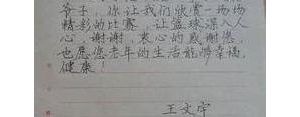 爷玉，你让我们欣赏一场场
精彩的比赛，让篮球深入人
心，谢谢，衷心的感谢您，
也愿您老年的生活能够幸福，
健康！
王文宇